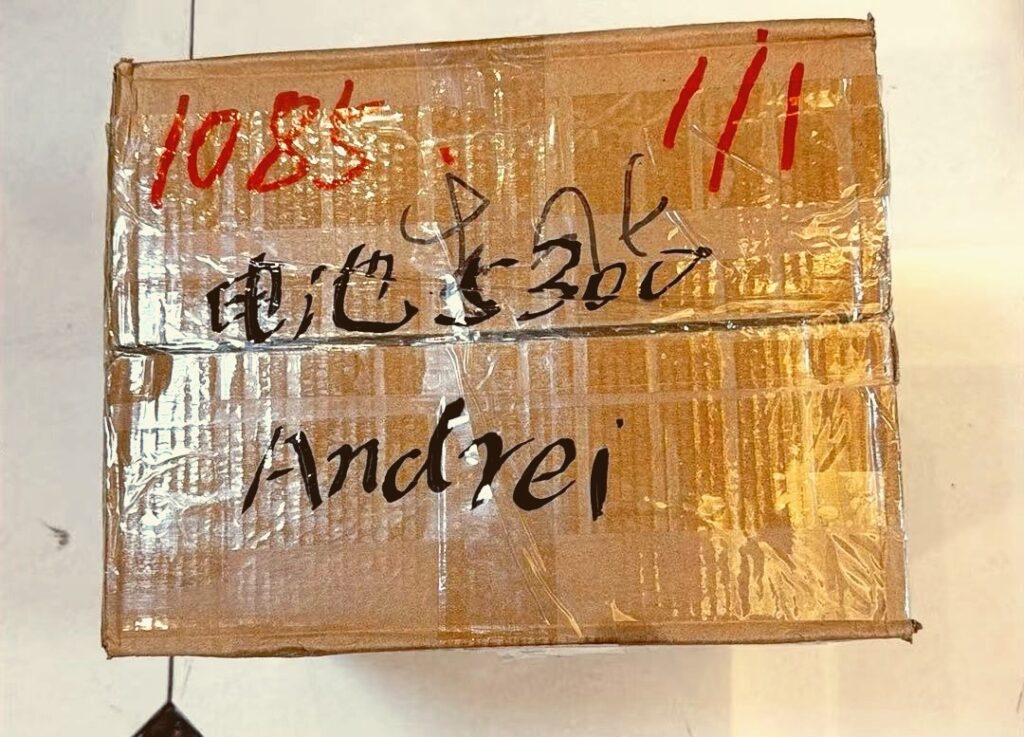 1085 1/1
电池 5300
Andrei